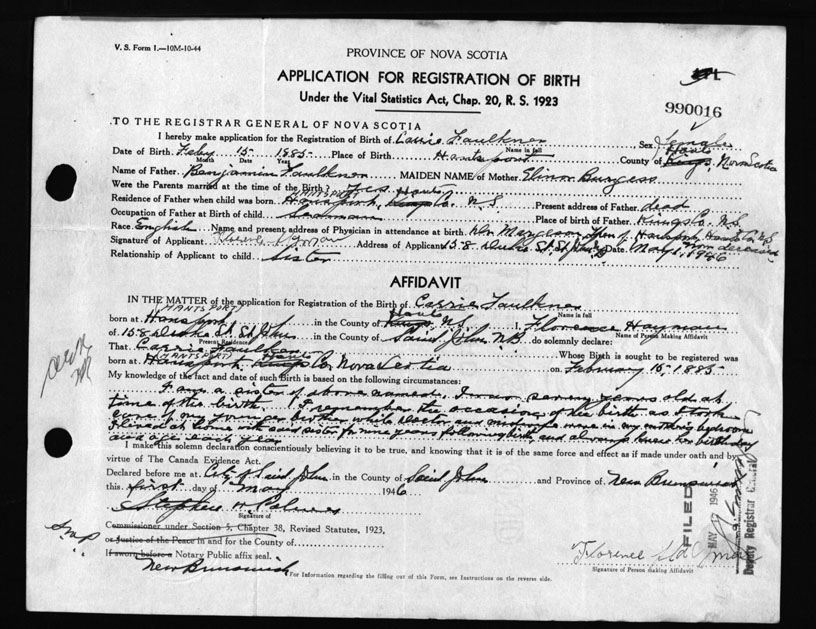 V. S. Form 1.—10M-10-44
PROVINCE OF NOVA SCOTIA
APPLICATION FOR REGISTRATION OF BIRTH
Under the Vital Statistics Act, Chap. 20, R. S. 1923
990016
TO THE REGISTRAR GENERAL OF NOVA SCOTIA
I hereby make application for the Registration of Birth of Carrie Faulkner Sex Female
Name in full
Date of Birth. Feby 15 1885 Place of Birth Hantsport County of Kings Hants Nova Scotia
Month Date Year
Name of Father Benjamin Faulkner MAIDEN NAME of Mother Elinor Burgess
Were the Parents married at the time of the Birth? Yes
Residence of Father when child was born Hantsport, Kings Co. N.S. Present address of Father dead
Occupation of Father at Birth of child Seaman Place of birth of Father Kings Co. N.S.
Race English Name and present address of Physician in attendance at birth. Dr. then of Hantsport Hants Co. N.S. now deceased
Signature of Applicant Address of Applicant 158 Duke St. St. John Date May 1, 1946
Relationship of Applicant to child Sister
AFFIDAVIT
IN THE MATTER of the application for Registration of the Birth of Carrie Faulkner
Name in full
HANTSPORT
born at in the County of Kings Hants N.S. I, Florence Hayman
Name of Person Making Affidavit
of 158 Duke St. St. John in the County of Saint John N.B. do solemnly declare:
Present Residence
That Carrie Faulkner Whose Birth is sought to be registered was
HANTSPORT
born at Hants Kings Co. Nova Scotia on February 15, 1885
My knowledge of the fact and date of such Birth is based on the following circumstances:
I am a sister of above named. I was seven years old at
time of the birth. I remember the occasion of the birth as I took
care of my younger brother while doctor and midwife were in my mother's bedroom
I lived at home with said sister for nine years following birth and always knew her birthday
and age each year
I make this solemn declaration conscientiously believing it to be true, and knowing that it is of the same force and effect as if made under oath and by
virtue of The Canada Evidence Act.
Declared before me at City of Saint John in the County of Saint John and Province of New Brunswick
this first day of May 1946
Stephen
Signature of
Commissioner under Section 5, Chapter 38, Revised Statutes, 1923,
or Justice of the Peace in and for the County of
If sworn before a Notary Public affix seal.
New Brunswick
FILED
MAY 1946
Deputy Registrar General
Florence
Signature of Person making Affidavit
For Information regarding the filling out of this Form, see Instructions on the reverse side.